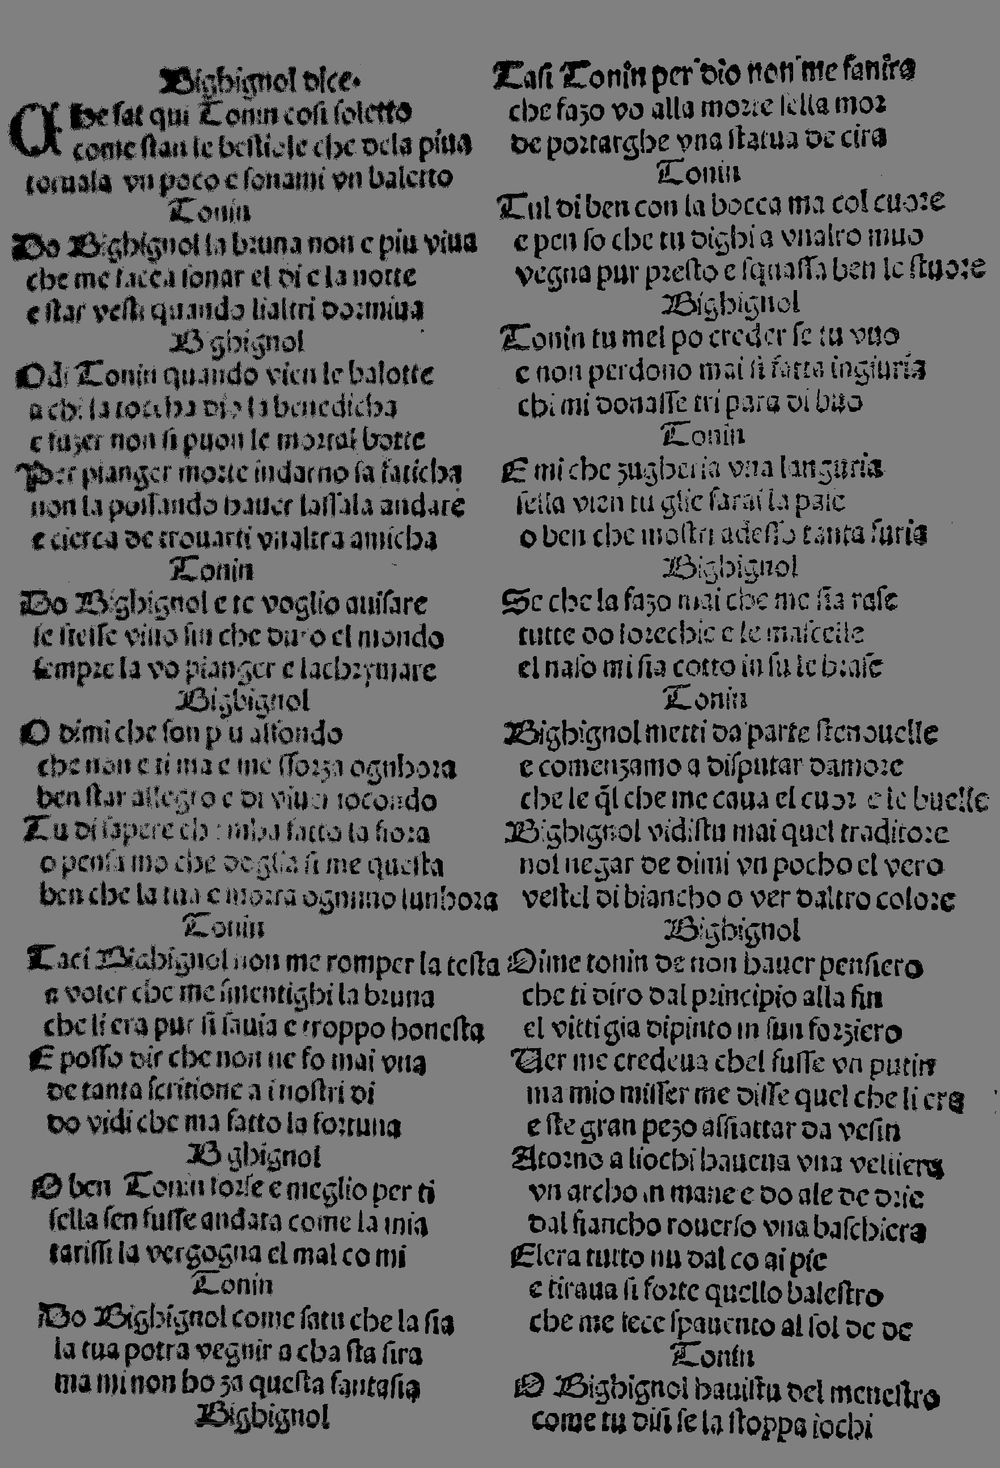 Bighignol dice.
Che fat qui Tonin cosi soletto
come stan le bestiole che dela piua
tornala vn poco e sonami vn baletto
Tonin
Do Bighignol la bruna non e piu viua
che me facea sonar el di e la notte
e star vesti quando lialtri dormiua
Bighignol
Odi Tonin quando vien le balotte
a chi la toccha dio la benedicha
e fuzer non si puon le mortal botte
Per pianger morte indarno sa faticha
non la possando hauer lassala andare
e cierca de trouarti vnaltra amicha
Tonin
Do Bighignol e te voglio auisare
se stesse viuo fin che duro el mondo
sempre la vo pianger e lachrymare
Bighignol
O dimi che son piu alfondo
che non e ti ma e me sforza ognhora
ben star allegro e di viuer iocondo
Tu di sapere che mha fatto la fiora
o pensa mo che doglia si me questa
ben che la tua e morta ognuno lunhora
Tonin
Taci Bighignol non me romper la testa
a voler che me smentighi la bruna
che li era pur si sauia e troppo honesta
E posso dir che non ne so mai vna
de tanta scritione a i nostri di
do vidi che ma fatto la fortuna
Bighignol
O ben Tonin forse e meglio per ti
sella sen fusse andata come la mia
tarissi la vergogna el mal co mi
Tonin
Do Bighignol come satu che la sia
la tua potra vegnir a cha sta sira
ma mi non ho za questa fantasia
Bighignol
Tasi Tonin per dio non me fanira
che fazo vo alla morte sella mor
de portarghe vna statua de cira
Tonin
Tul di ben con la bocca ma col cuore
e pen so che tu dighi a vnaltro muo
vegna pur presto e squassa ben le stuore
Bighignol
Tonin tu mel po creder se tu vuo
e non perdono mai si fatta ingiuria
chi mi donasse tri para di buo
Tonin
E mi che zugheria vna languria
sella vien tu glie farai la paie
o ben che mostri adesso tanta furia
Bighignol
Se che la fazo mai che me sia rase
tutte do lorechie e le mascelle
el naso mi sia cotto in su le brase
Tonin
Bighignol metti da parte ste nouelle
e comenzamo a disputar damore
che le q̃l che me caua el cuor e le buelle
Bighignol vidistu mai quel traditore
nol negar de dimi vn pocho el vero
vestel di biancho o ver daltro colore
Bighignol
Oime tonin de non hauer pensiero
che ti diro dal principio alla fin
el vitti gia dipinto in sun forziero
Uer me credeua chel fusse vn putin
ma mio misser me disse quel che li era
e ste gran pezo assiattar da vesin
Atorno a liochi haueua vna veliiera
vn archo in mane e do ale de drie
dal fiancho rouerso vna baschiera
Elera tutto nu dal co ai pie
e tiraua si forte quello balestro
che me fece spauento al sol de de
Tonin
O Bighignol hauistu del menestro
come tu disi se la stoppa iochi